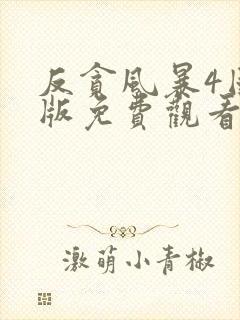 反貪風暴4
版免費觀看
激萌小青椒